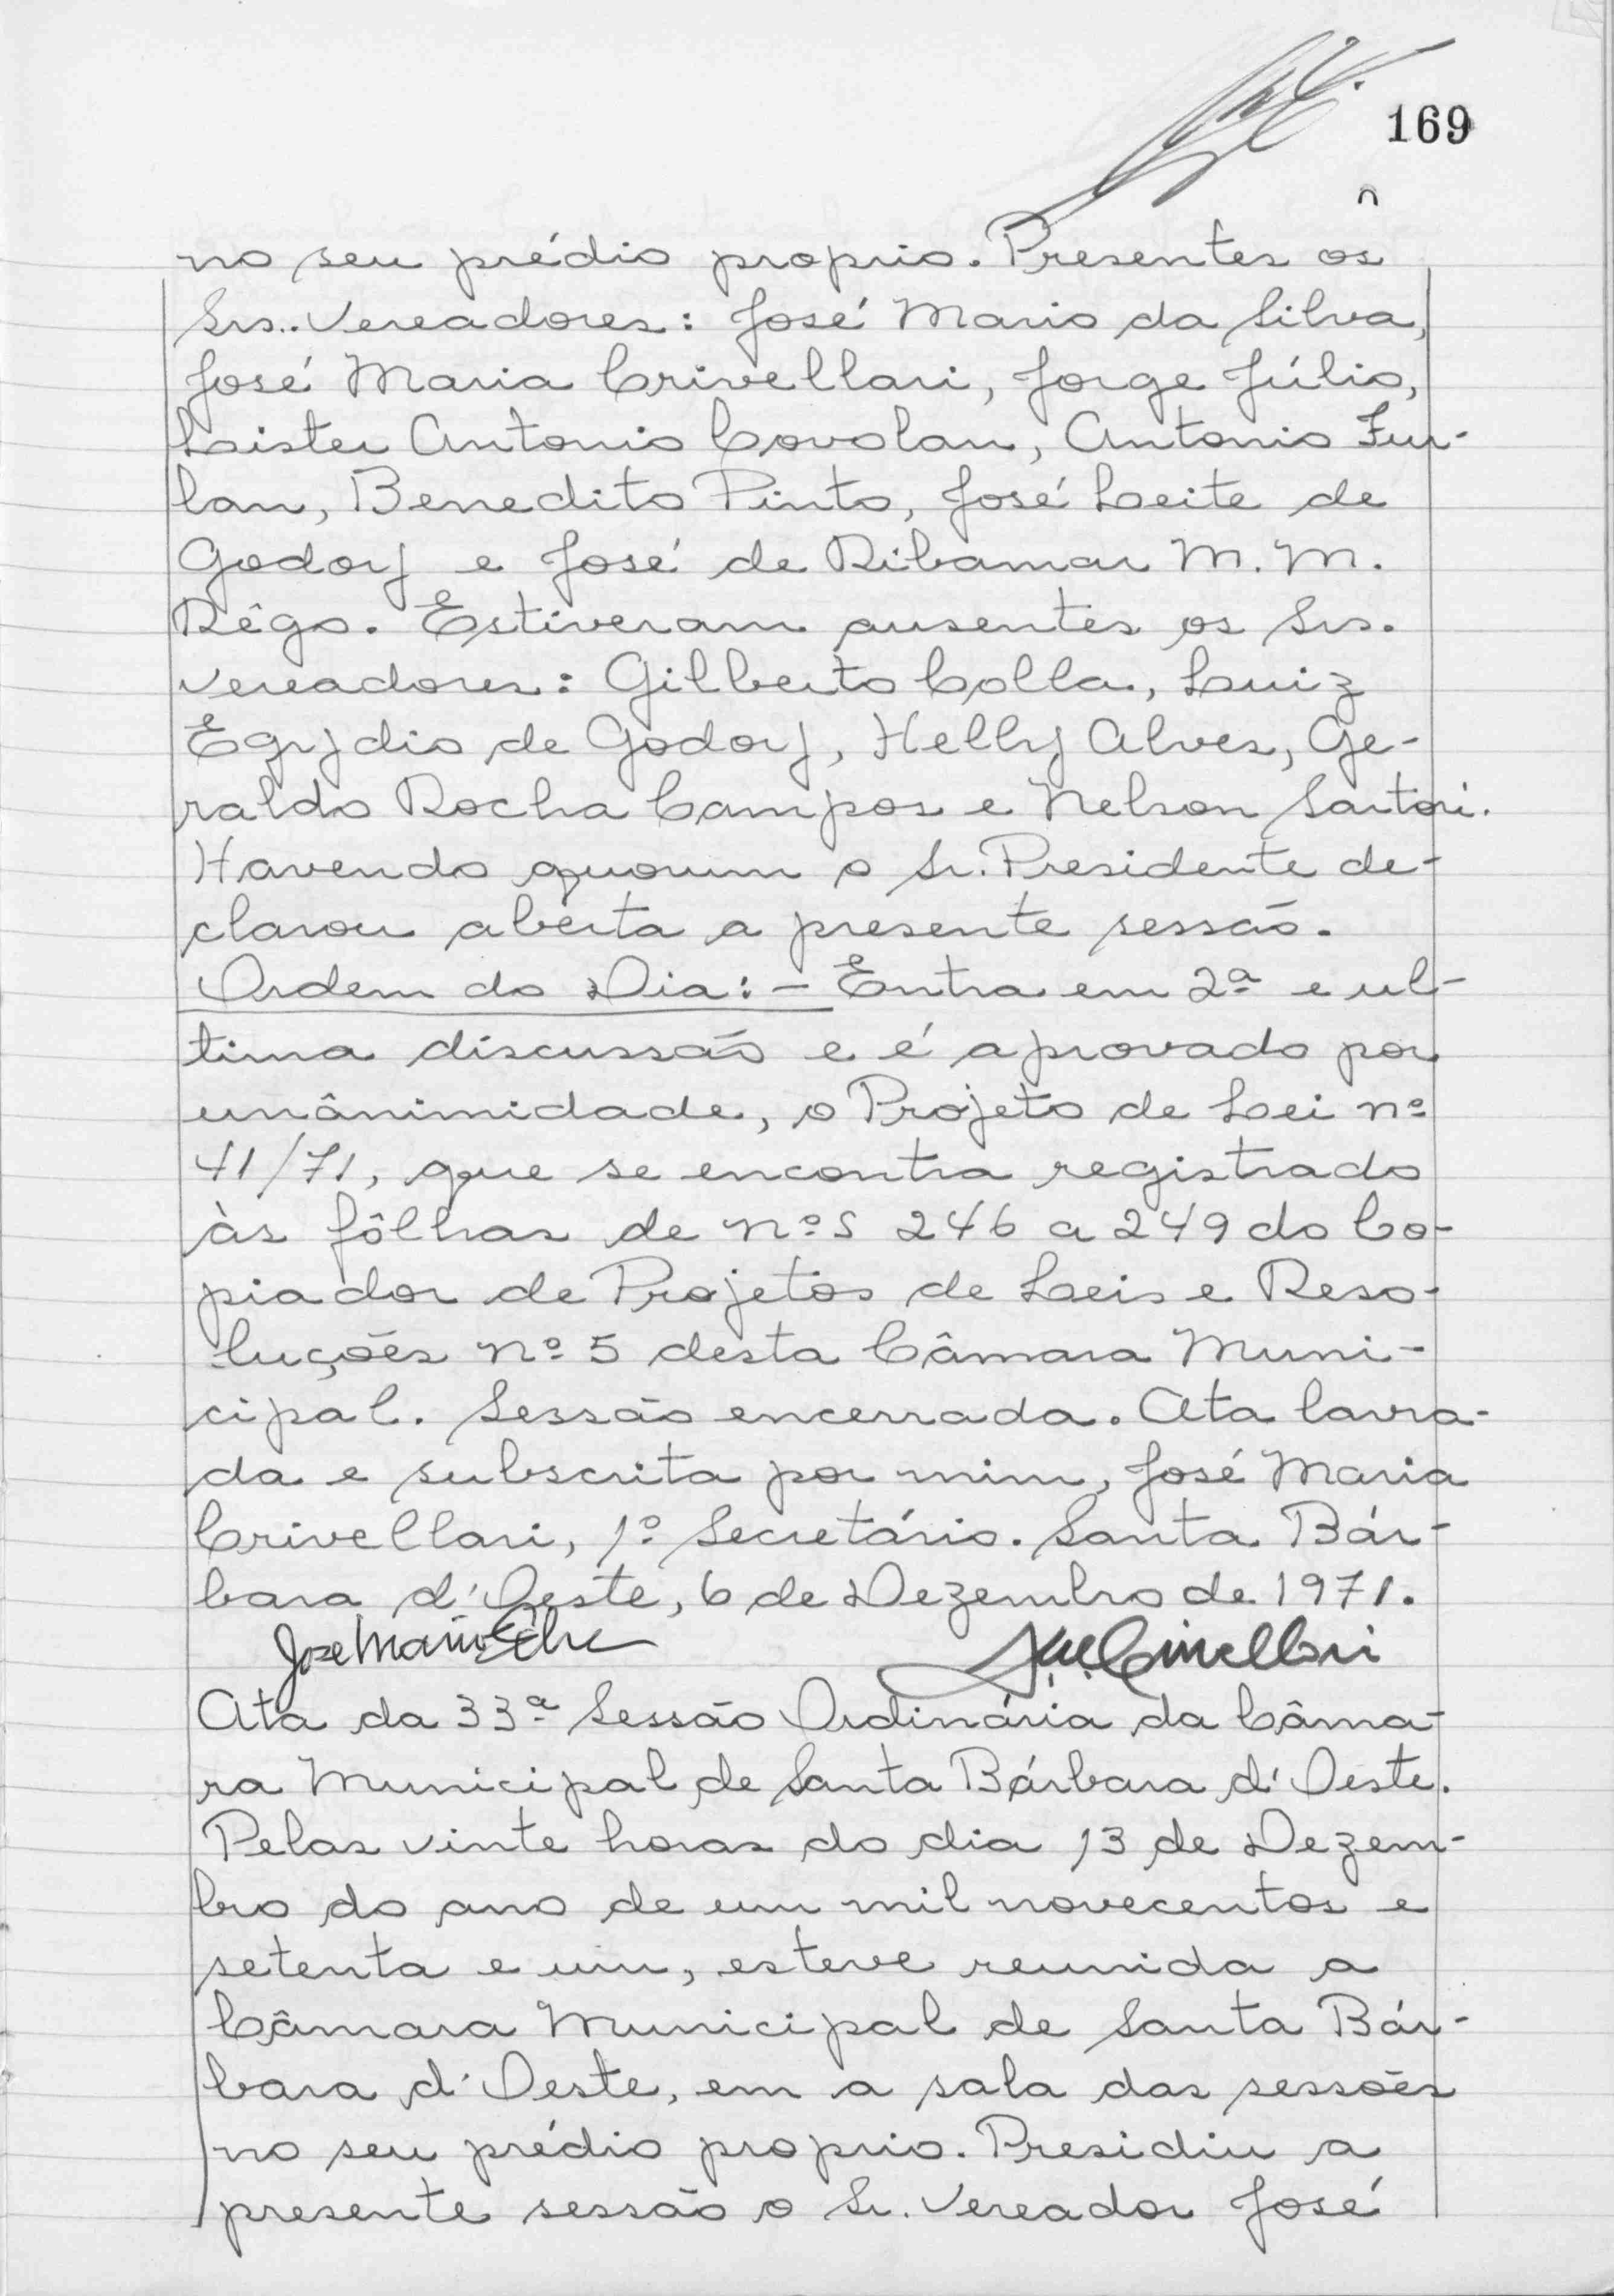 169
no seu prédio proprio. Presentes os
Srs. Vereadores: José Mario da Silva,
José Maria Crivellari, Jorge Júlio,
Lister Antonio Covolan, Antonio Fur-
lan, Benedito Pinto, José Leite de
Godoy e José de Ribamar M. M.
Rêgo. Estiveram ausentes os Srs.
Vereadores: Gilberto Colla, Luiz
Egydio de Godoy, Helly Alves, Ge-
raldo Rocha Campos e Nelson Sartori.
Havendo quorum o Sr. Presidente de-
clarou aberta a presente sessão.
Ordem do Dia:- Entra em 2ª e ul-
tima discussão e é aprovado por
unânimidade, o Projeto de Lei nº
41/71, que se encontra registrado
às fôlhas de nºs 246 a 249 do Co-
piador de Projetos de Leis e Reso-
luções nº 5 desta Câmara Muni-
cipal. Sessão encerrada. Ata lavra-
da e subscrita por mim, José Maria
Crivellari, 1º Secretário. Santa Bár-
bara d'Oeste, 6 de Dezembro de 1971.
Jose Mario Silva Crivellari
Ata da 33ª Sessão Ordinária da Câma-
ra Municipal de Santa Bárbara d'Oeste.
Pelas vinte horas do dia 13 de Dezem-
bro do ano de um mil novecentos e
setenta e um, esteve reunida a
Câmara Municipal de Santa Bár-
bara d'Oeste, em a sala das sessões
no seu prédio proprio. Presidiu a
presente sessão o Sr. Vereador José